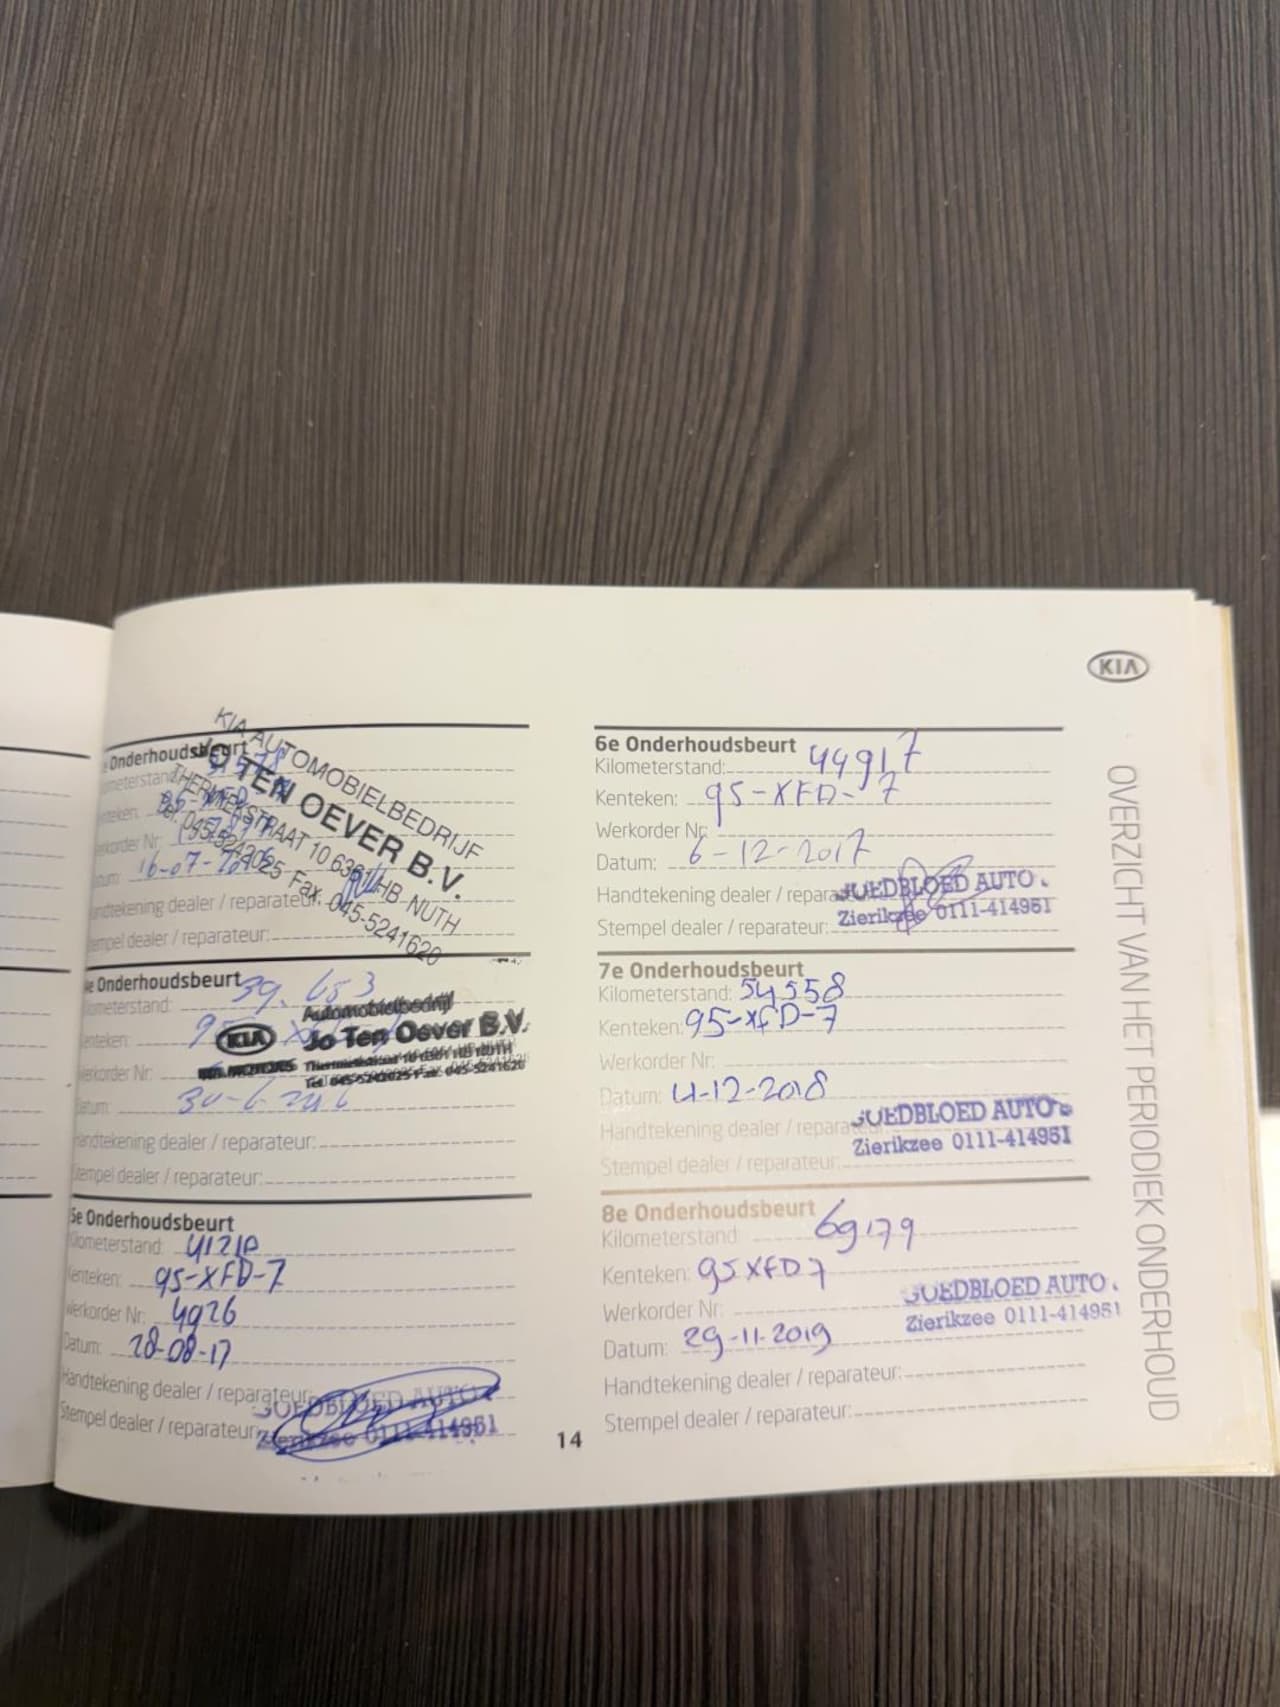 KIA
OVERZICHT VAN HET PERIODIEK ONDERHOUD
Onderhoudsbeurt
Kilometerstand:
Kenteken:
Werkorder Nr:
16-07-
Handtekening dealer / reparateur:
Stempel dealer / reparateur:
KIA AUTOMOBIELBEDRIJF
JO TEN OEVER B.V.
THERMIEKSTRAAT 10 6361 HB NUTH
Tel. 045-5242025 Fax. 045-5241620
4e Onderhoudsbeurt
Kilometerstand: 39.653
Kenteken: 95
Werkorder Nr:
Datum: 30-6-
Handtekening dealer / reparateur:
Stempel dealer / reparateur:
Automobielbedrijf
KIA Jo Ten Oever B.V.
KIA MOTORS Thermiekstraat 10 6361 HB NUTH
Tel. 045-5242025 Fax. 045-5241620
5e Onderhoudsbeurt
Kilometerstand:
Kenteken: 95-XFD-7
Werkorder Nr: 4926
Datum: 28-08-17
Handtekening dealer / reparateur:
Stempel dealer / reparateur:
GOEDBLOED AUTO
Zierikzee 0111-414951
6e Onderhoudsbeurt
Kilometerstand: 44917
Kenteken: 95-XFD-7
Werkorder Nr:
Datum: 6-12-2017
Handtekening dealer / reparateur:
Stempel dealer / reparateur:
GOEDBLOED AUTO
Zierikzee 0111-414951
7e Onderhoudsbeurt
Kilometerstand: 54558
Kenteken: 95-XFD-7
Werkorder Nr:
Datum: 4-12-2018
Handtekening dealer / reparateur:
Stempel dealer / reparateur:
GOEDBLOED AUTO
Zierikzee 0111-414951
8e Onderhoudsbeurt
Kilometerstand: 69179
Kenteken: 95XFD7
Werkorder Nr:
Datum: 29-11-2019
Handtekening dealer / reparateur:
Stempel dealer / reparateur:
GOEDBLOED AUTO
Zierikzee 0111-414951
14